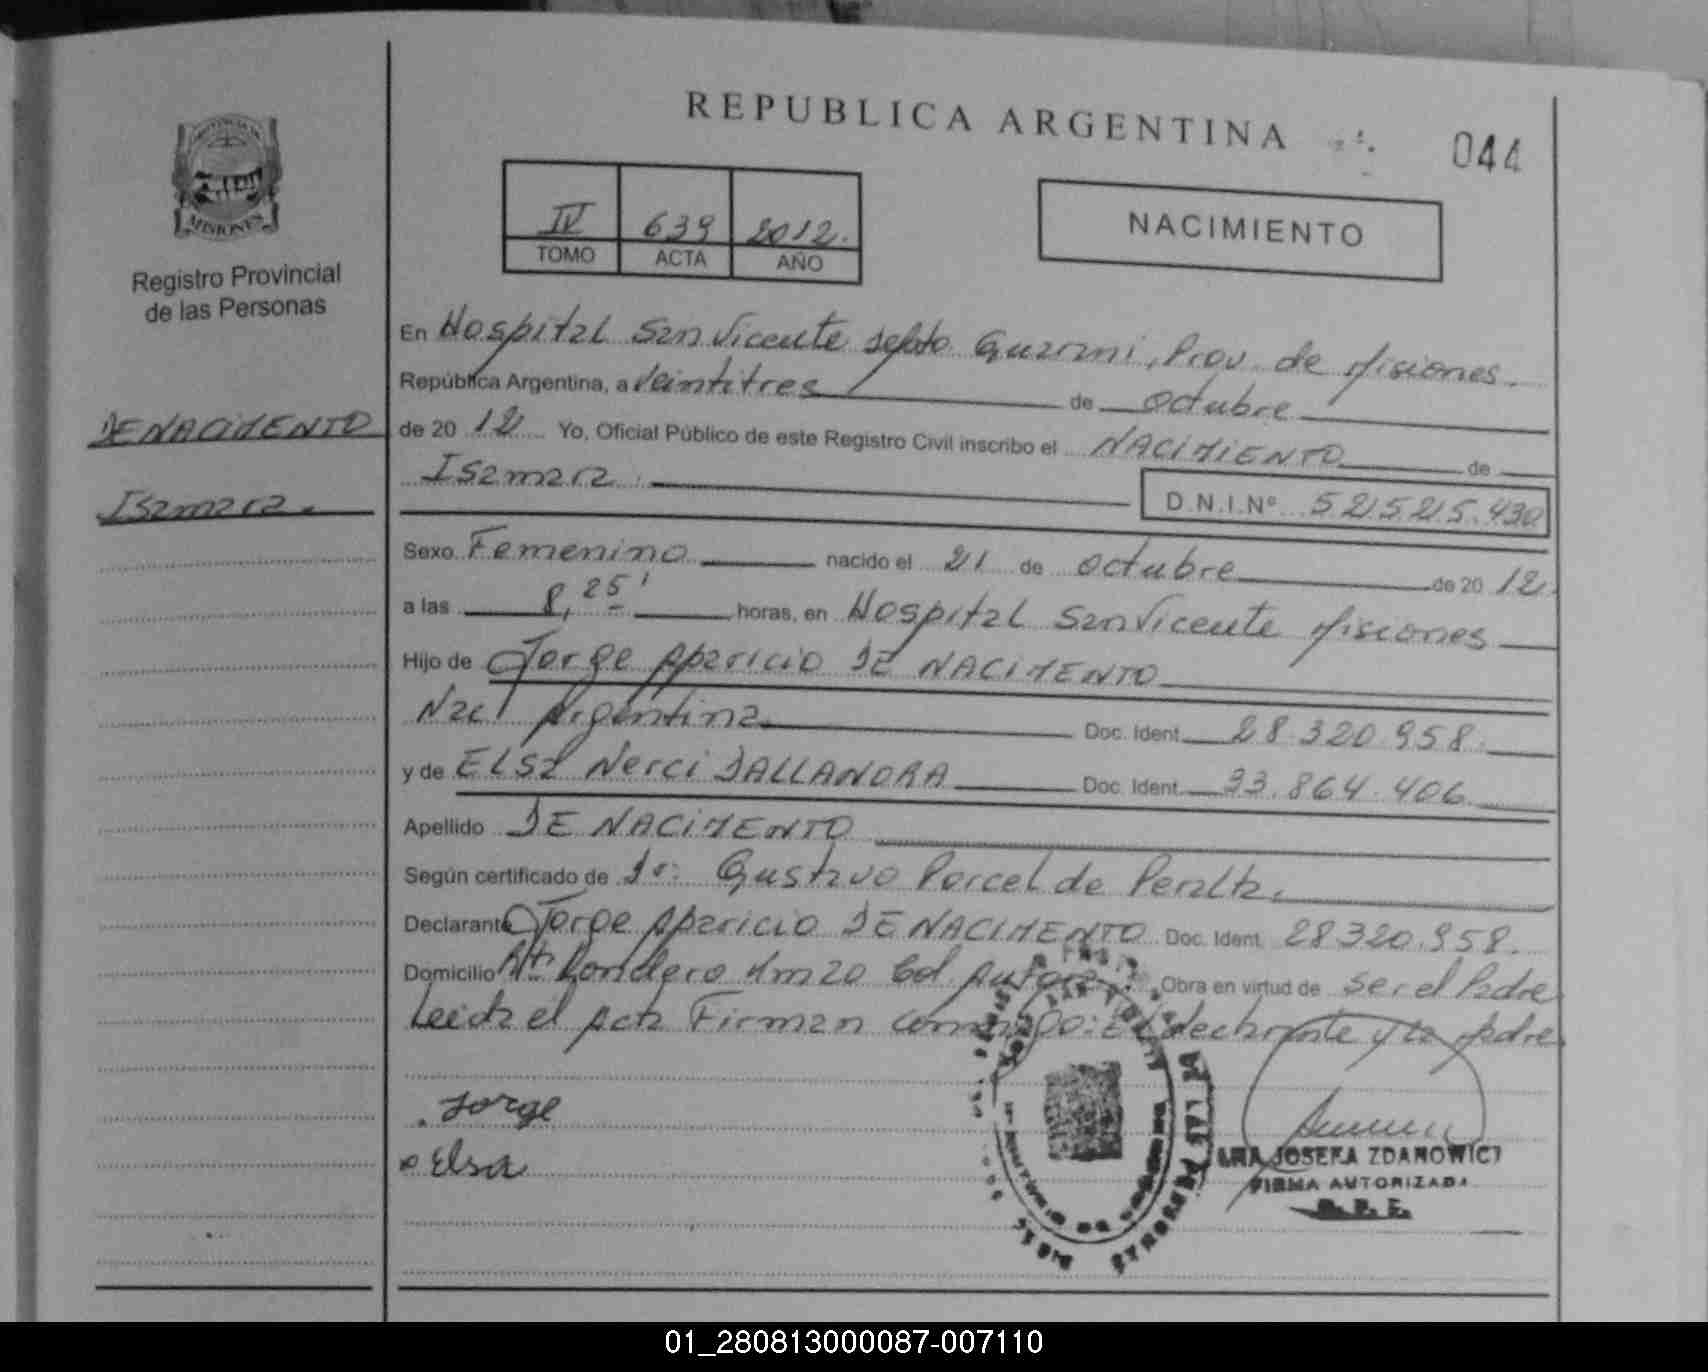 REPUBLICA ARGENTINA
044
PROVINCIA DE
MISIONES
Registro Provincial
de las Personas
IV 639 2012.
TOMO ACTA AÑO
NACIMIENTO
En Hospital San Vicente depto Guarani, Prov. de Misiones.
República Argentina, a Veintitres de octubre
DE NACIMENTO
de 20 12 Yo, Oficial Público de este Registro Civil inscribo el NACIMIENTO de
Isamara.
Isamara.
D.N.I.Nº 52.525.430
Sexo Femenino nacido el 21 de octubre de 20 12.
a las 8,25' horas, en Hospital San Vicente Misiones
Hijo de Jorge Aparicio DE NACIMENTO
Nac Argentina Doc. Ident. 28.320.958.
y de ELSA Nerci DALLANORA Doc. Ident. 33.864.406
Apellido DE NACIMENTO
Según certificado de Dr: Gustavo Porcel de Peralta.
Declarante Jorge Aparicio DE NACIMENTO Doc. Ident. 28320.958.
Domicilio Londero Km 20 Col. Obra en virtud de ser el Padre
Leida el Acta Firman conmigo: El declarante y la Madre
Jorge
Elsa
DE LAS PERSONAS
JOSEFA ZDANOWICZ
FIRMA AUTORIZADA
01_280813000087-007110